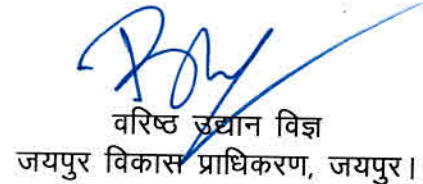 वरिष्ठ उद्यान विज्ञ
जयपुर विकास प्राधिकरण, जयपुर।